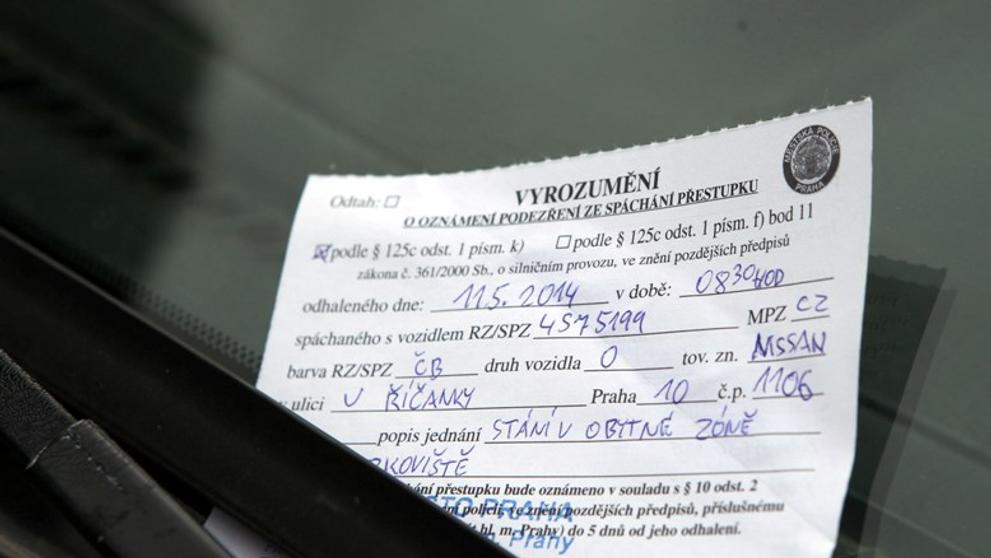 MĚSTSKÁ POLICIE PRAHA
Odtah: ☐ VYROZUMĚNÍ
O OZNÁMENÍ PODEZŘENÍ ZE SPÁCHÁNÍ PŘESTUPKU
☒ podle § 125c odst. 1 písm. k) ☐ podle § 125c odst. 1 písm. f) bod 11
zákona č. 361/2000 Sb., o silničním provozu, ve znění pozdějších předpisů
odhaleného dne: 11.5. 2014 v době: 08 30 HOD
spáchaného s vozidlem RZ/SPZ 4S75199 MPZ CZ
barva RZ/SPZ ČB druh vozidla O tov. zn. NISSAN
ulici U ŘÍČANKY Praha 10 č.p. 1106
popis jednání STÁNÍ V OBYTNÉ ZÓNĚ
RKOVIŠTĚ
hání přestupku bude oznámeno v souladu s § 10 odst. 2
ní policii, ve znění pozdějších předpisů, příslušnému
hl. m. Prahy) do 5 dnů od jeho odhalení.
STO PRAHA
Prahy